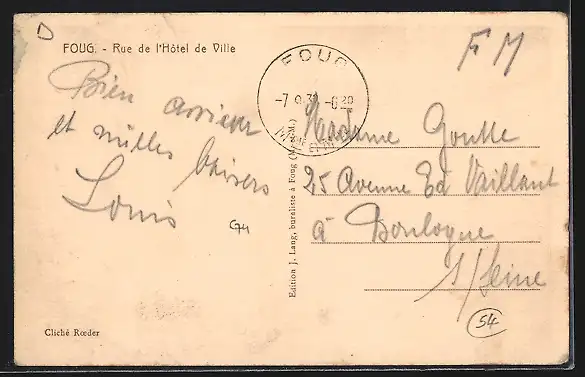 D
FOUG. - Rue de l'Hôtel de Ville
F M
FOUG
-7 9 39 -6 20
Bien arriver
et milles baisers
Louis
G4
Madame Goutte
25 Avenue Ed Vaillant
à Boulogne
s/Seine
54
Edition J. Lang, buraliste à Foug (M.-et-M.)
Cliché Rœder